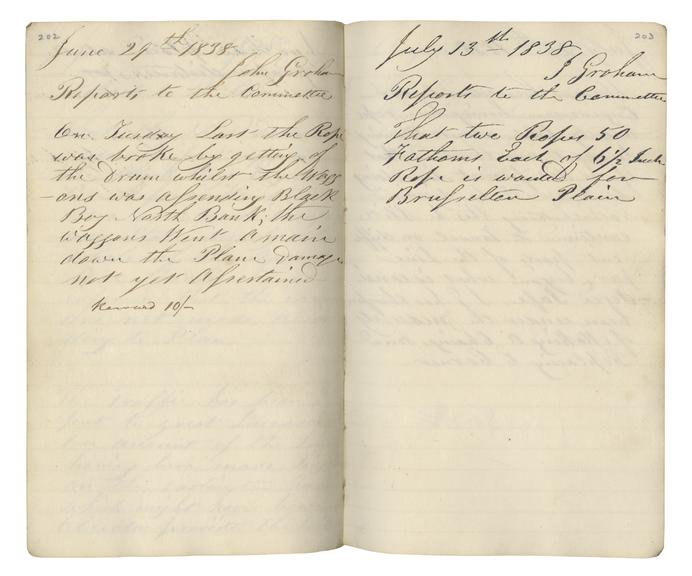 202
June 29th 1838
John Groham
Reports to the Committee
On Tusday Last the Rope
was broke by geting of
the Drum whilst the Wagg
-ons was assending Black
Boy North Bank, the
waggons Went amain
down the Plane Damage
not yet assertained
10/-
203
July 13th 1838
J Groham
Reports to the Committee
That two Ropes 50
Fathoms Each of 6½ Inch
Rope is wanted for
Brusselton Plain